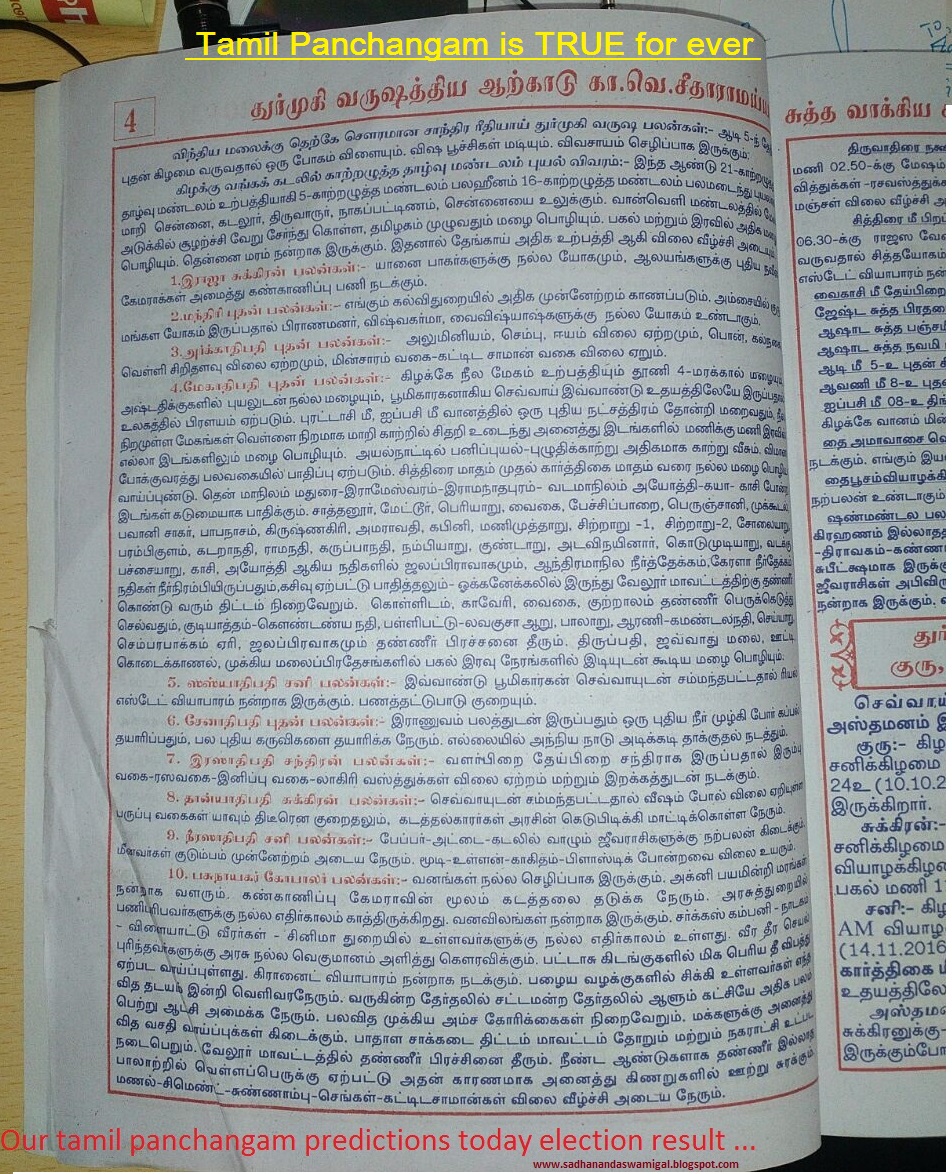 Tamil Panchangam is TRUE for ever
4
துர்முகி வருஷத்திய ஆற்காடு கா.வெ.சீதாராமய்ய
விந்திய மலைக்கு தெற்கே சௌரமான சாந்திர ரீதியாய் துர்முகி வருஷ பலன்கள்:- ஆடி 5-ந்
புதன் கிழமை வருவதால் ஒரு போகம் விளையும். விஷ பூச்சிகள் மடியும். விவசாயம் செழிப்பாக இருக்கும்.
கிழக்கு வங்கக் கடலில் காற்றழுத்த தாழ்வு மண்டலம் புயல் விவரம்:- இந்த ஆண்டு 21-காற்றழுத்த
தாழ்வு மண்டலம் உற்பத்தியாகி 5-காற்றழுத்த மண்டலம் பலஹீனம் 16-காற்றழுத்த மண்டலம் பலமடைந்து
மாறி சென்னை, கடலூர், திருவாரூர், நாகப்பட்டிணம், சென்னையை உலுக்கும். வான்வெளி மண்டலத்தில்
அடுக்கில் சூழற்ச்சி வேறு சேர்ந்து கொள்ள, தமிழகம் முழுவதும் மழை பொழியும். பகல் மற்றும் இரவில் அதிக
பொழியும். தென்னை மரம் நன்றாக இருக்கும். இதனால் தேங்காய் அதிக உற்பத்தி ஆகி விலை வீழ்ச்சி அடையும்
1.இராஜா சுக்கிரன் பலன்கள்:- யானை பாகர்களுக்கு நல்ல யோகமும், ஆலயங்களுக்கு புதிய
கேமராக்கள் அமைத்து கண்காணிப்பு பணி நடக்கும்.
2.மந்திரி புதன் பலன்கள்:- எங்கும் கல்விதுறையில் அதிக முன்னேற்றம் காணப்படும். அம்சையில்
மங்கள யோகம் இருப்பதால் பிராணமனர், விஷ்வகர்மா, வைவிஷ்யாஷ்களுக்கு நல்ல யோகம் உண்டாகும்.
3.அர்க்காதிபதி புதன் பலன்கள்:- அலுமினியம், செம்பு, ஈயம் விலை ஏற்றமும், பொன்,
வெள்ளி சிறிதளவு விலை ஏற்றமும், மின்சாரம் வகை-கட்டிட சாமான் வகை விலை ஏறும்.
4.மேகாதிபதி புதன் பலன்கள்:- கிழக்கே நீல மேகம் உற்பத்தியும் தூணி 4-மரக்கால் மழையும்
அஷ்டதிக்குகளில் புயலுடன் நல்ல மழையும், பூமிகாரகனாகிய செவ்வாய் இவ்வாண்டு உதயத்திலேயே இருப்பதால்
உலகத்தில் பிரளயம் ஏற்படும். புரட்டாசி மீ, ஐப்பசி மீ வானத்தில் ஒரு புதிய நட்சத்திரம் தோன்றி மறைவதும்,
நிறமுள்ள மேகங்கள் வெள்ளை நிறமாக மாறி காற்றில் சிதறி உடைந்து அனைத்து இடங்களில் மணிக்கு மணி
எல்லா இடங்களிலும் மழை பொழியும். அயல்நாட்டில் பனிப்புயல்-புழுதிக்காற்று அதிகமாக காற்று வீசும்.
போக்குவரத்து பலவகையில் பாதிப்பு ஏற்படும். சித்திரை மாதம் முதல் கார்த்திகை மாதம் வரை நல்ல மழை
வாய்ப்புண்டு. தென் மாநிலம் மதுரை-இராமேஸ்வரம்-இராமநாதபுரம்- வடமாநிலம் அயோத்தி-கயா- காசி
இடங்கள் கடுமையாக பாதிக்கும். சாத்தனூர், மேட்டூர், பெரியாறு, வைகை, பேச்சிப்பாறை, பெருஞ்சாணி,
பவானி சாகர், பாபநாசம், கிருஷ்ணகிரி, அமராவதி, கபினி, மணிமுத்தாறு, சிற்றாறு -1, சிற்றாறு-2, சோலையாறு,
பரம்பிகுளம், கடறாநதி, ராமநதி, கருப்பாநதி, நம்பியாறு, குண்டாறு, அடவிநயினார், கொடுமுடியாறு,
பச்சையாறு, காசி, அயோத்தி ஆகிய நதிகளில் ஜலப்பிரவாகமும், ஆந்திரமாநில நீர்த்தேக்கம்,கேரளா நீர்தேக்கம்
நதிகள் நீர்நிரம்பியிருப்பதும்,கசிவு ஏற்பட்டு பாதித்ததலும் - ஒக்கனேக்கலில் இருந்து வேலூர் மாவட்டத்திற்கு தண்ணீர்
கொண்டு வரும் திட்டம் நிறைவேறும். கொள்ளிடம், காவேரி, வைகை, குற்றாலம் தண்ணீர் பெருக்கெடுத்து
செல்வதும், குடியாத்தம்-கௌண்டண்ய நதி, பள்ளிபட்டு-லவகுசா ஆறு, பாலாறு, ஆரணி-கமண்டலநதி, செய்யாறு,
செம்பரபாக்கம் ஏரி, ஜலப்பிரவாகமும் தண்ணீர் பிரச்சனை தீரும். திருப்பதி, ஜவ்வாது மலை, ஊட்டி
கொடைக்காணல், முக்கிய மலைப்பிரதேசங்களில் பகல் இரவு நேரங்களில் இடியுடன் கூடிய மழை பொழியும்.
5. ஸஸ்யாதிபதி சனி பலன்கள்:- இவ்வாண்டு பூமிகாரகன் செவ்வாயுடன் சம்மந்தபட்டதால் ரியல்
எஸ்டேட் வியாபாரம் நன்றாக இருக்கும். பணத்தட்டுபாடு குறையும்.
6. சேனாதிபதி புதன் பலன்கள்:- இராணுவம் பலத்துடன் இருப்பதும் ஒரு புதிய நீர் முழ்கி போர் கப்பல்
தயாரிப்பதும், பல புதிய கருவிகளை தயாரிக்க நேரும். எல்லையில் அந்நிய நாடு அடிக்கடி தாக்குதல் நடத்தும்.
7. இரஸாதிபதி சந்திரன் பலன்கள்:- வளர்பிறை தேய்பிறை சந்திராக இருப்பதால் இரும்பு
வகை-ரஸவகை-இனிப்பு வகை-லாகிரி வஸ்த்துக்கள் விலை ஏற்றம் மற்றும் இறக்கத்துடன் நடக்கும்.
8. தான்யாதிபதி சுக்கிரன் பலன்கள்:- செவ்வாயுடன் சம்மந்தபட்டதால் வீஷம் போல் விலை ஏறியுள்ள
பருப்பு வகைகள் யாவும் திடீரென குறைதலும், கடத்தல்காரர்கள் அரசின் கெடுபிடிக்கி மாட்டிக்கொள்ள நேரும்.
9. நீரஸாதிபதி சனி பலன்கள்:- பேப்பர்-அட்டை-கடலில் வாழும் ஜீவராசிகளுக்கு நற்பலன் கிடைக்கும்.
மீனவர்கள் குடும்பம் முன்னேற்றம் அடைய நேரும். மூடி-உள்ளன்-காகிதம்-பிளாஸ்டிக் போன்றவை விலை உயரும்.
10. பசுநாயகர் கோபாலர் பலன்கள்:- வனங்கள் நல்ல செழிப்பாக இருக்கும். அக்னி பயமின்றி மரங்கள்
நன்றாக வளரும். கண்காணிப்பு கேமராவின் மூலம் கடத்தலை தடுக்க நேரும். அரசுத்துறையில்
பணிபுரிபவர்களுக்கு நல்ல எதிர்காலம் காத்திருக்கிறது. வனவிலங்கள் நன்றாக இருக்கும். சர்க்கஸ் கம்பனி - நாடகம்
- விளையாட்டு வீரர்கள் - சினிமா துறையில் உள்ளவர்களுக்கு நல்ல எதிர்காலம் உள்ளது. வீர தீர செயல்
புரிந்தவர்களுக்கு அரசு நல்ல வெகுமானம் அளித்து கௌரவிக்கும். பட்டாசு கிடங்குகளில் மிக பெரிய தீ விபத்து
ஏற்பட வாய்ப்புள்ளது. கிரானைட் வியாபாரம் நன்றாக நடக்கும். பழைய வழக்குகளில் சிக்கி உள்ளவர்கள் எந்த
வித தடயடி இன்றி வெளிவரநேரும். வருகின்ற தேர்தலில் சட்டமன்ற தேர்தலில் ஆளும் கட்சியே அதிக பலம்
பெற்று ஆட்சி அமைக்க நேரும். பலவித முக்கிய அம்ச கோரிக்கைகள் நிறைவேறும். மக்களுக்கு அனைத்து
வித வசதி வாய்ப்புக்கள் கிடைக்கும். பாதாள சாக்கடை திட்டம் மாவட்டம் தோறும் மற்றும் நகராட்சி உட்பட
நடைபெறும். வேலூர் மாவட்டத்தில் தண்ணீர் பிரச்சினை தீரும். நீண்ட ஆண்டுகளாக தண்ணீர் இல்லாத
பாலாற்றில் வெள்ளப்பெருக்கு ஏற்பட்டு அதன் காரணமாக அனைத்து கிணறுகளில் ஊற்று சுரக்கும்
மணல்-சிமெண்ட்-சுண்ணாம்பு-செங்கள்-கட்டிடசாமான்கள் விலை வீழ்ச்சி அடைய நேரும்.
சுத்த வாக்கிய
திருவாதிரை
மணி 02.50-க்கு மேஷம்
வித்துக்கள் -ரசவஸ்த்துக்
மஞ்சள் விலை வீழ்ச்சி
சித்திரை மீ பிற
06.30-க்கு ராஜஸ
வருவதால் சித்தயோகம்
எஸ்டேட் வியாபாரம்
வைகாசி மீ தேய்பிறை
ஜேஷ்ட சுத்த பிரதமை
ஆஷாட சுத்த பஞ்சம்
ஆஷாட சுத்த நவமி
ஆடி மீ 5-உ புதன்
ஆவணி மீ 8-உ புத
ஐப்பசி மீ 08-உ திங்
கிழக்கே வானம் மின்
தை அமாவாசை
நடக்கும். எங்கும்
தைபூசம்வியாழக்கி
நற்பலன் உண்டாகும்
ஷண்மண்டல பல
கிரஹணம் இல்லாத
-திராவகம்-கண்ணா
சுபீட்க்ஷமாக இருக்கு
ஜீவராசிகள் அபிவிரு
நன்றாக இருக்கும்.
துர்
குரு
செவ்வாய
அஸ்தமனம் இ
குரு:- கிழ
சனிக்கிழமை
24உ (10.10.2
இருக்கிறார்.
சுக்கிரன்:-
சனிக்கிழமை
வியாழக்கிழ
பகல் மணி 1
சனி:- கிழ
AM வியாழ
(14.11.2016
கார்த்திகை மீ
உதயத்திலே
அஸ்தம
சுக்கிரனுக்கு
இருக்கும்போ
Our tamil panchangam predictions today election result ...
www.sadhanandaswamigal.blogspot.com